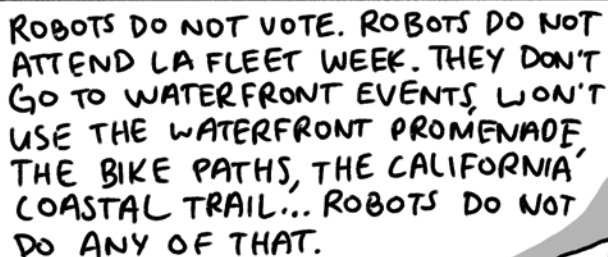 ROBOTS DO NOT VOTE. ROBOTS DO NOT
ATTEND LA FLEET WEEK. THEY DON'T
GO TO WATERFRONT EVENTS, WON'T
USE THE WATERFRONT PROMENADE,
THE BIKE PATHS, THE CALIFORNIA
COASTAL TRAIL... ROBOTS DO NOT
DO ANY OF THAT.